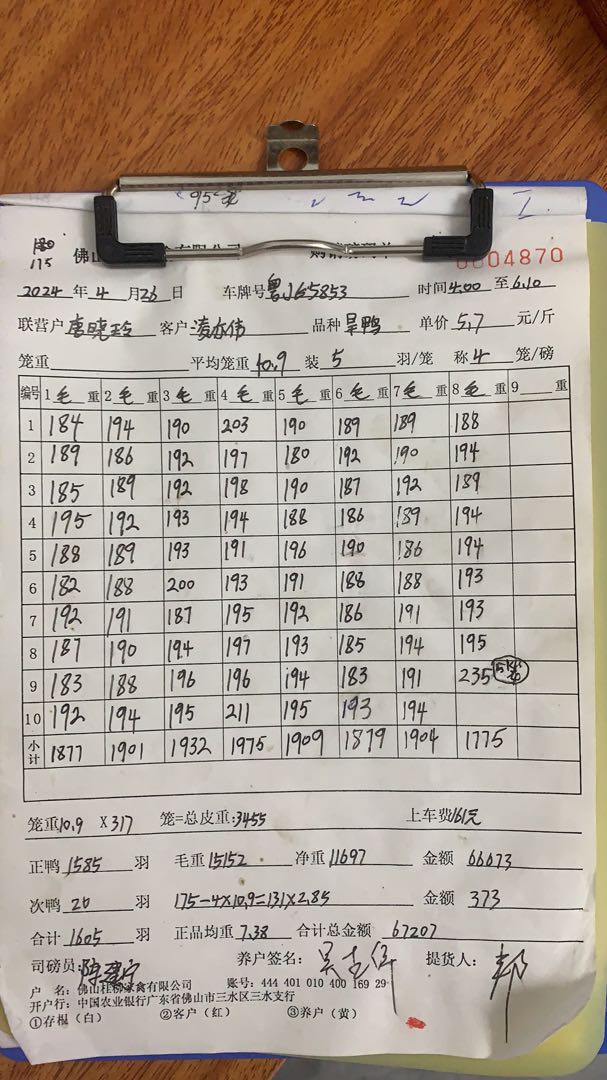 95
180
175 佛山 有限公司
0004870
2024 年 4 月 26 日 车牌号 粤J65853 时间 4.00 至 6.10
联营户 唐晓玲 客户 凌亦伟 品种 旱鸭 单价 5.7 元/斤
笼重 平均笼重 10.9 装 5 羽/笼 称 4 笼/磅
编号 1 毛 重 2 毛 重 3 毛 重 4 毛 重 5 毛 重 6 毛 重 7 毛 重 8 毛 重 9 重
1 184 194 190 203 190 189 189 188
2 189 186 192 197 180 192 190 194
3 185 189 192 198 190 187 192 189
4 195 192 193 194 188 186 189 194
5 188 189 193 191 196 190 186 194
6 182 188 200 193 191 188 188 193
7 192 191 187 195 192 186 191 193
8 187 190 194 197 193 185 194 195
9 183 188 196 196 194 183 191 235
10 192 194 195 211 195 193 194
小计 1877 1901 1932 1975 1909 1879 1904 1775
笼重 10.9 X 317 笼=总皮重: 3455 上车费 161元
正鸭 1585 羽 毛重 15152 净重 11697 金额 66673
次鸭 20 羽 175-4×10.9=131×2.85 金额 373
合计 1605 羽 正品均重 7.38 合计总金额 67207
司磅员: 养户签名: 提货人: 邦
户 名: 佛山桂柳家禽有限公司 账号: 444 401 010 400 169 29
开户行: 中国农业银行广东省佛山市三水区三水支行
①存根(白) ②客户(红) ③养户(黄)